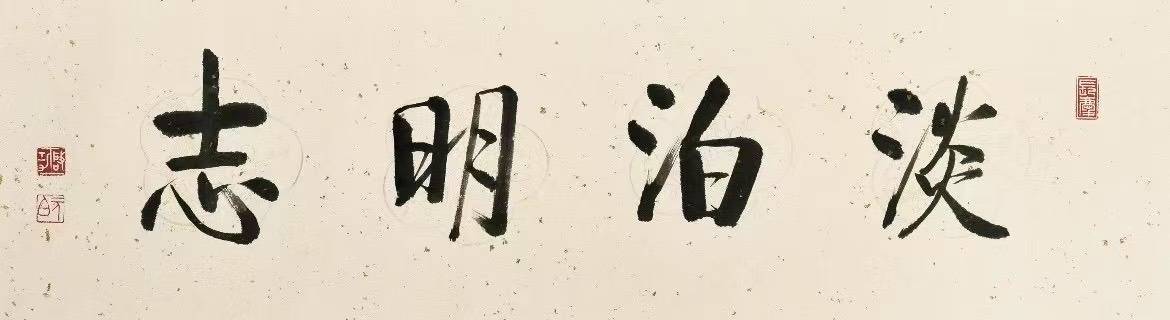 淡泊明志